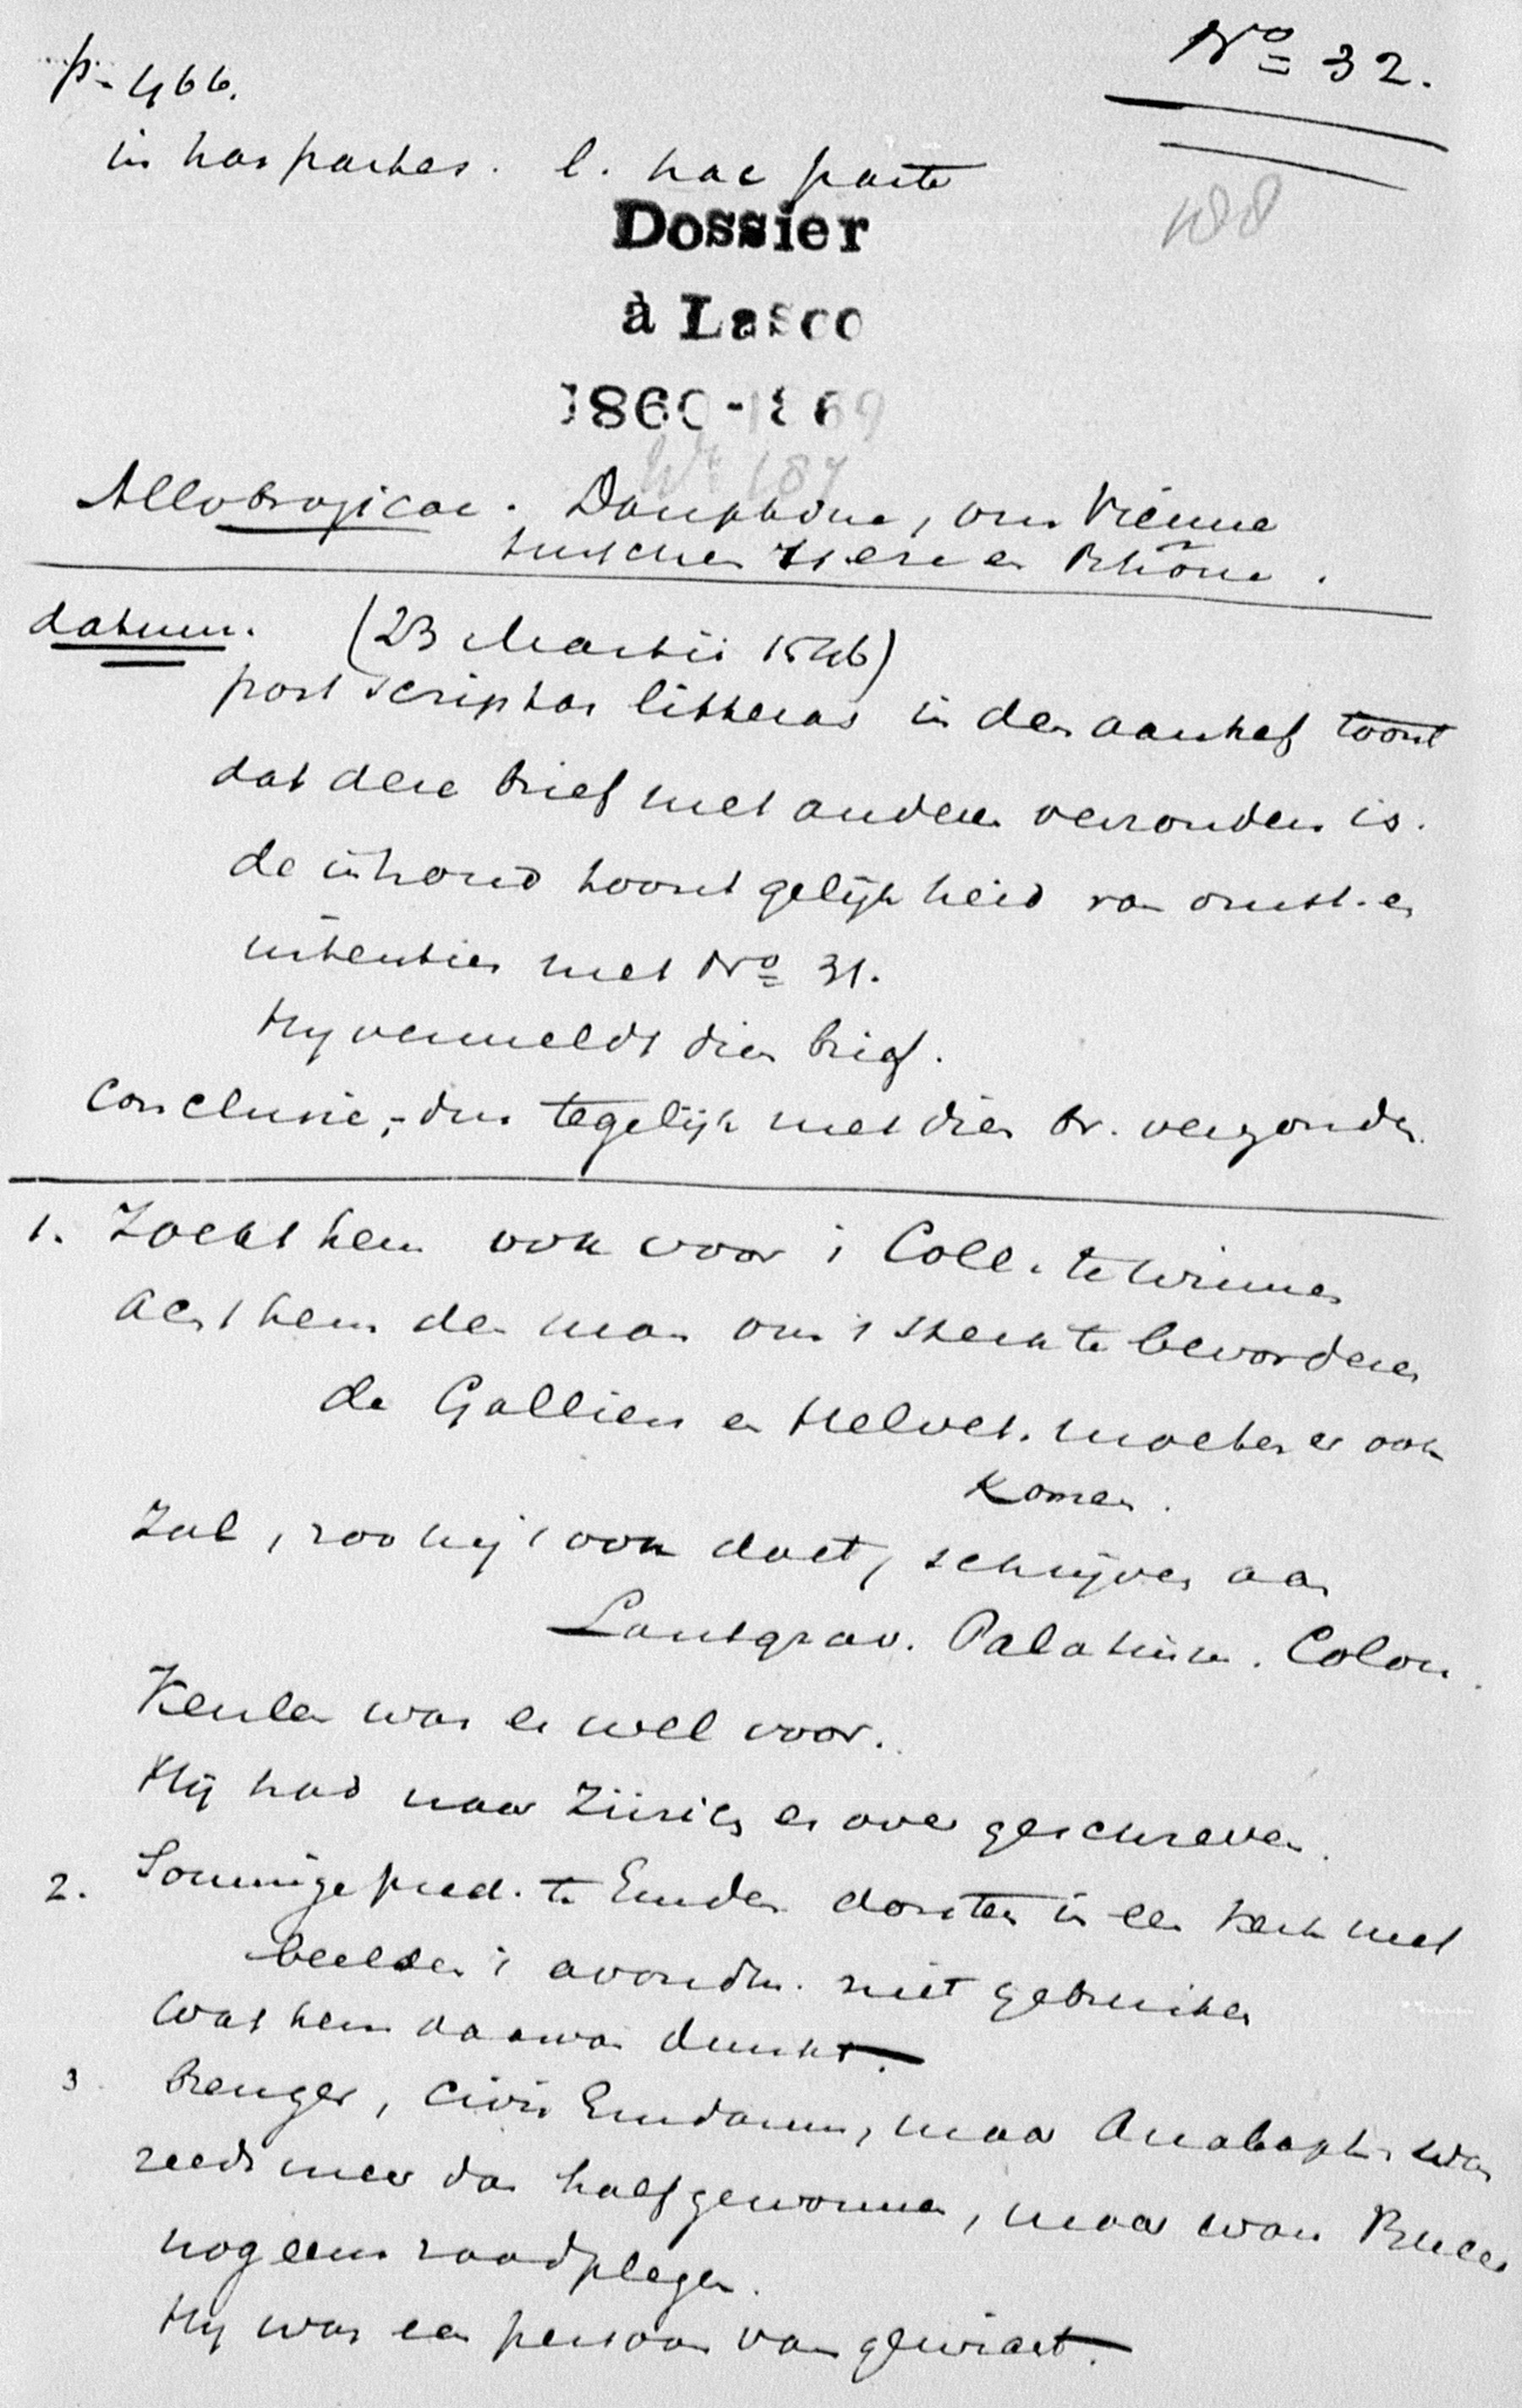 p. 466.
No 32.
in has partes. l. hac parte
188
Dossier
à Lasco
1860-1869
No 187
Allobrogicae. Dauphine, om Vienne
tusschen Isere en Rhône.
datum. (23 Martii 1546)
post scriptas litteras in den aanhef toont
dat deze brief met andere verzonden is.
de inhoud toont gelijkheid van omst. en
intenties met No 31.
Hy vermeldt dien brief.
Conclusie, - dus tegelijk met dien br. verzonden.
1. Zocht hem ook voor 't Coll. te winnen
acht hem den man om 't sterk te bevorderen
de Gallien en Helvet. moeten er ook
komen.
Zal, zoo hij 't ook doet, schrijven aan
Lantgrav. Palatin. Colon.
Keulen was er wel voor.
Hij had naar Zürich er over geschreven.
2. Sommige pred. te Emden dorsten in een kerk met
beelden 't avondm. niet gebruiken
wat hem daarvan dunkt.
3. , civis Emdanus, maar Anabapt. was
reeds meer dan half gewonnen, maar wou Bucer
nog eens raadplegen.
Hy was een persoon van gewicht.